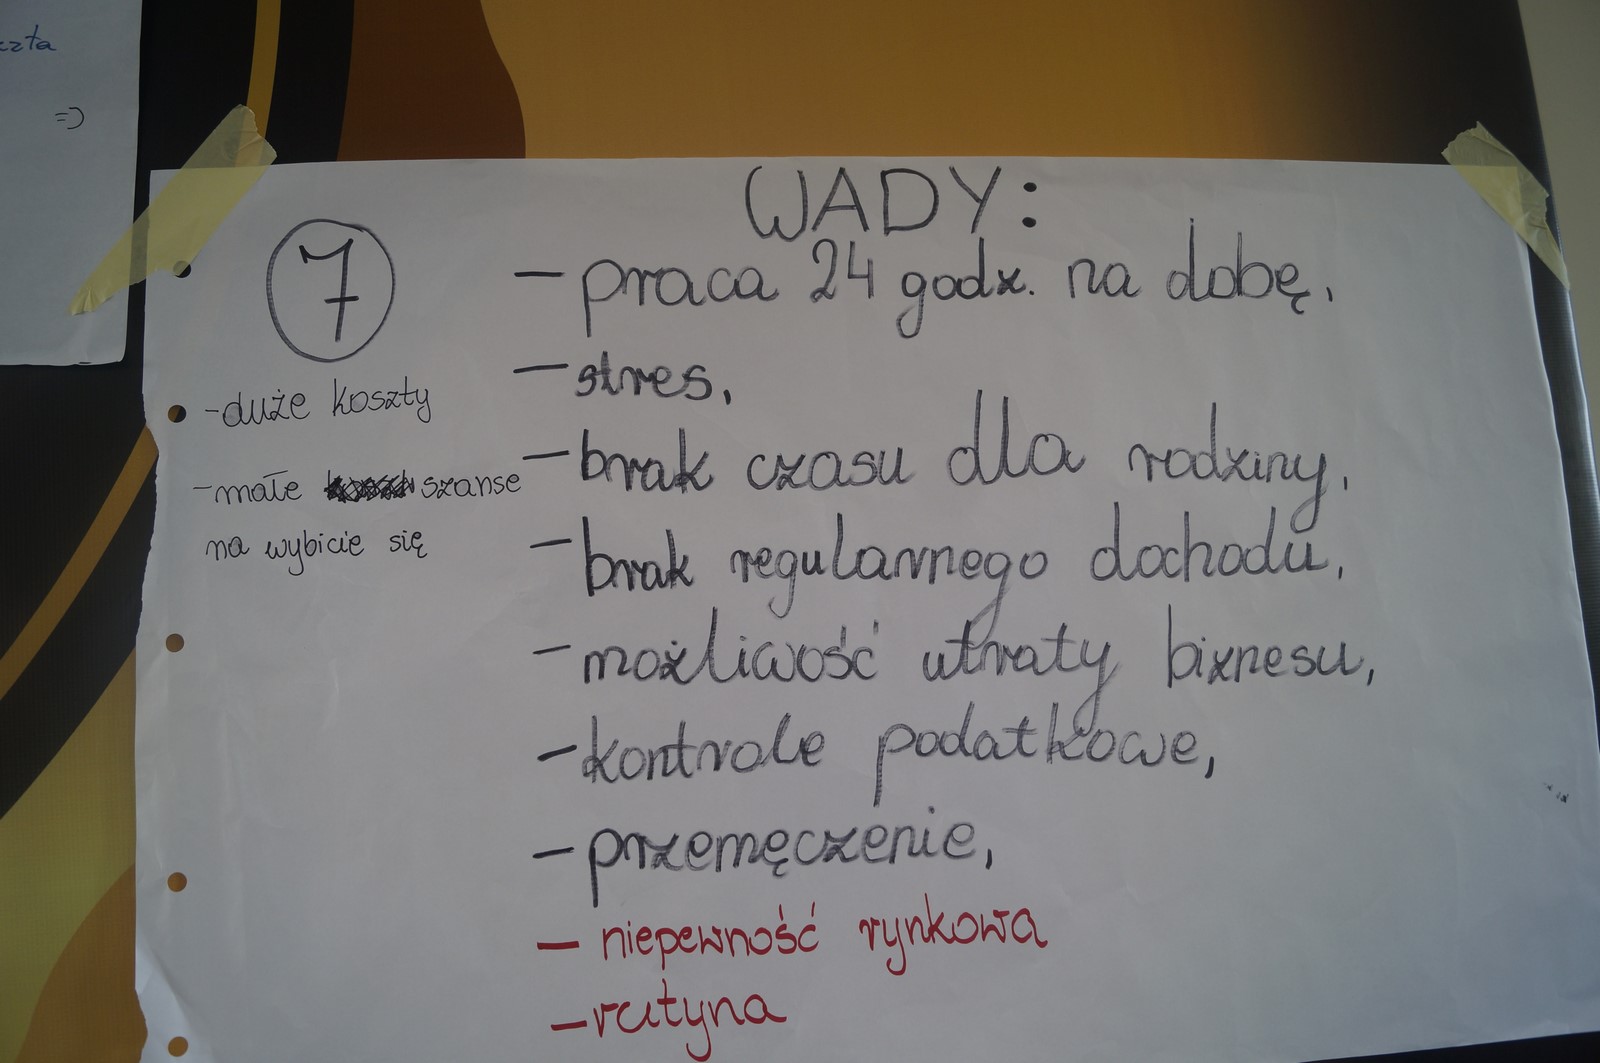 =)
WADY:
7
- praca 24 godz. na dobę,
- stres,
- brak czasu dla rodziny,
- brak regularnego dochodu,
- możliwość utraty biznesu,
- kontrole podatkowe,
- przemęczenie,
- niepewność rynkowa
- rutyna
- duże koszty
- małe szanse
na wybicie się